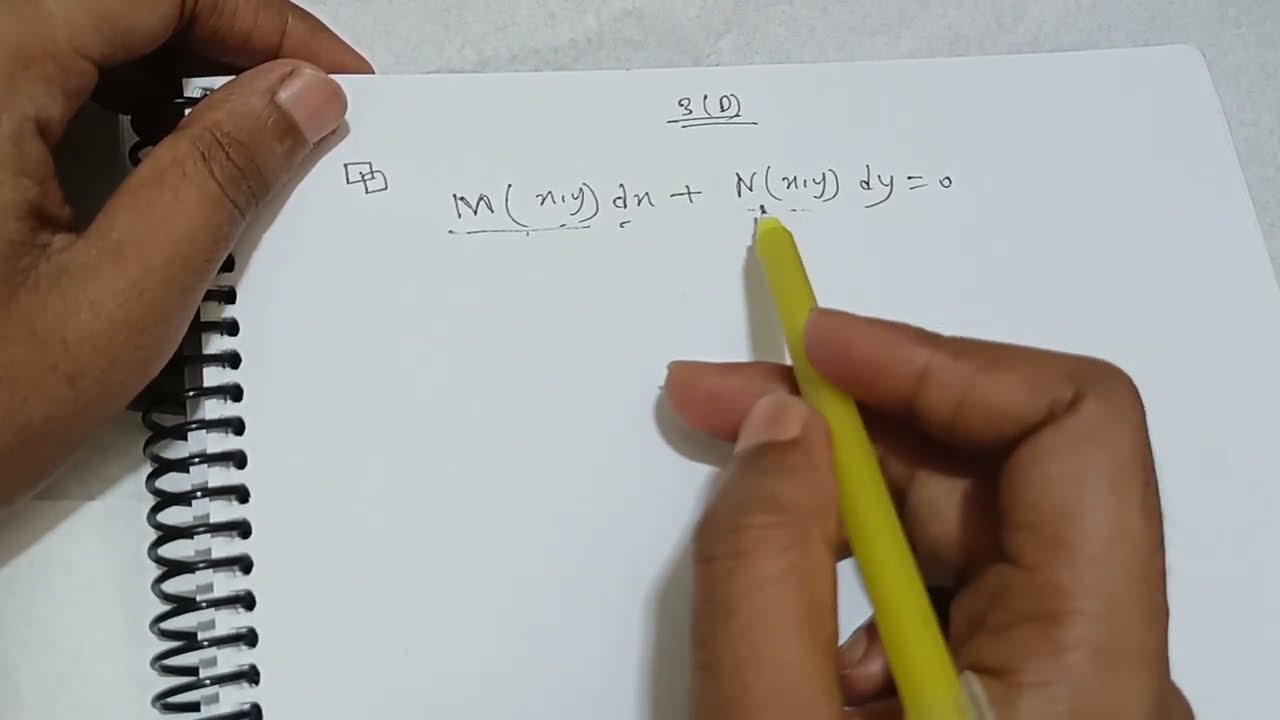 3(D)
M(x,y) dx + N(x,y) dy = 0